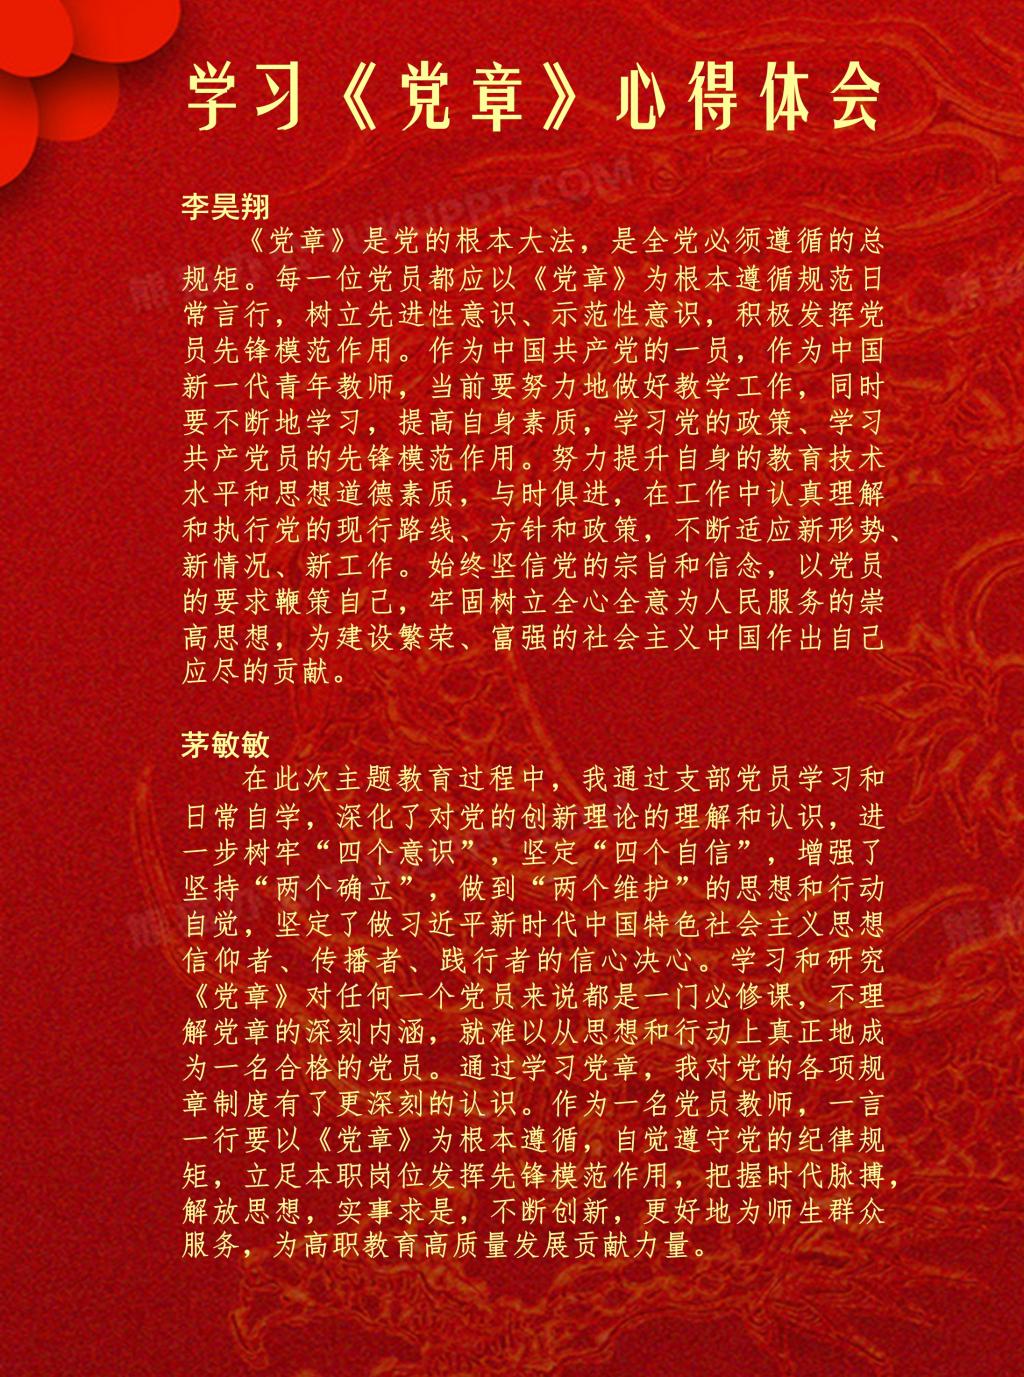 学习《党章》心得体会
李昊翔
《党章》是党的根本大法，是全党必须遵循的总
规矩。每一位党员都应以《党章》为根本遵循规范日
常言行，树立先进性意识、示范性意识，积极发挥党
员先锋模范作用。作为中国共产党的一员，作为中国
新一代青年教师，当前要努力地做好教学工作，同时
要不断地学习，提高自身素质，学习党的政策、学习
共产党员的先锋模范作用。努力提升自身的教育技术
水平和思想道德素质，与时俱进，在工作中认真理解
和执行党的现行路线、方针和政策，不断适应新形势、
新情况、新工作。始终坚信党的宗旨和信念，以党员
的要求鞭策自己，牢固树立全心全意为人民服务的崇
高思想，为建设繁荣、富强的社会主义中国作出自己
应尽的贡献。
茅敏敏
在此次主题教育过程中，我通过支部党员学习和
日常自学，深化了对党的创新理论的理解和认识，进
一步树牢“四个意识”，坚定“四个自信”，增强了
坚持“两个确立”，做到“两个维护”的思想和行动
自觉，坚定了做习近平新时代中国特色社会主义思想
信仰者、传播者、践行者的信心决心。学习和研究
《党章》对任何一个党员来说都是一门必修课，不理
解党章的深刻内涵，就难以从思想和行动上真正地成
为一名合格的党员。通过学习党章，我对党的各项规
章制度有了更深刻的认识。作为一名党员教师，一言
一行要以《党章》为根本遵循，自觉遵守党的纪律规
矩，立足本职岗位发挥先锋模范作用，把握时代脉搏，
解放思想，实事求是，不断创新，更好地为师生群众
服务，为高职教育高质量发展贡献力量。